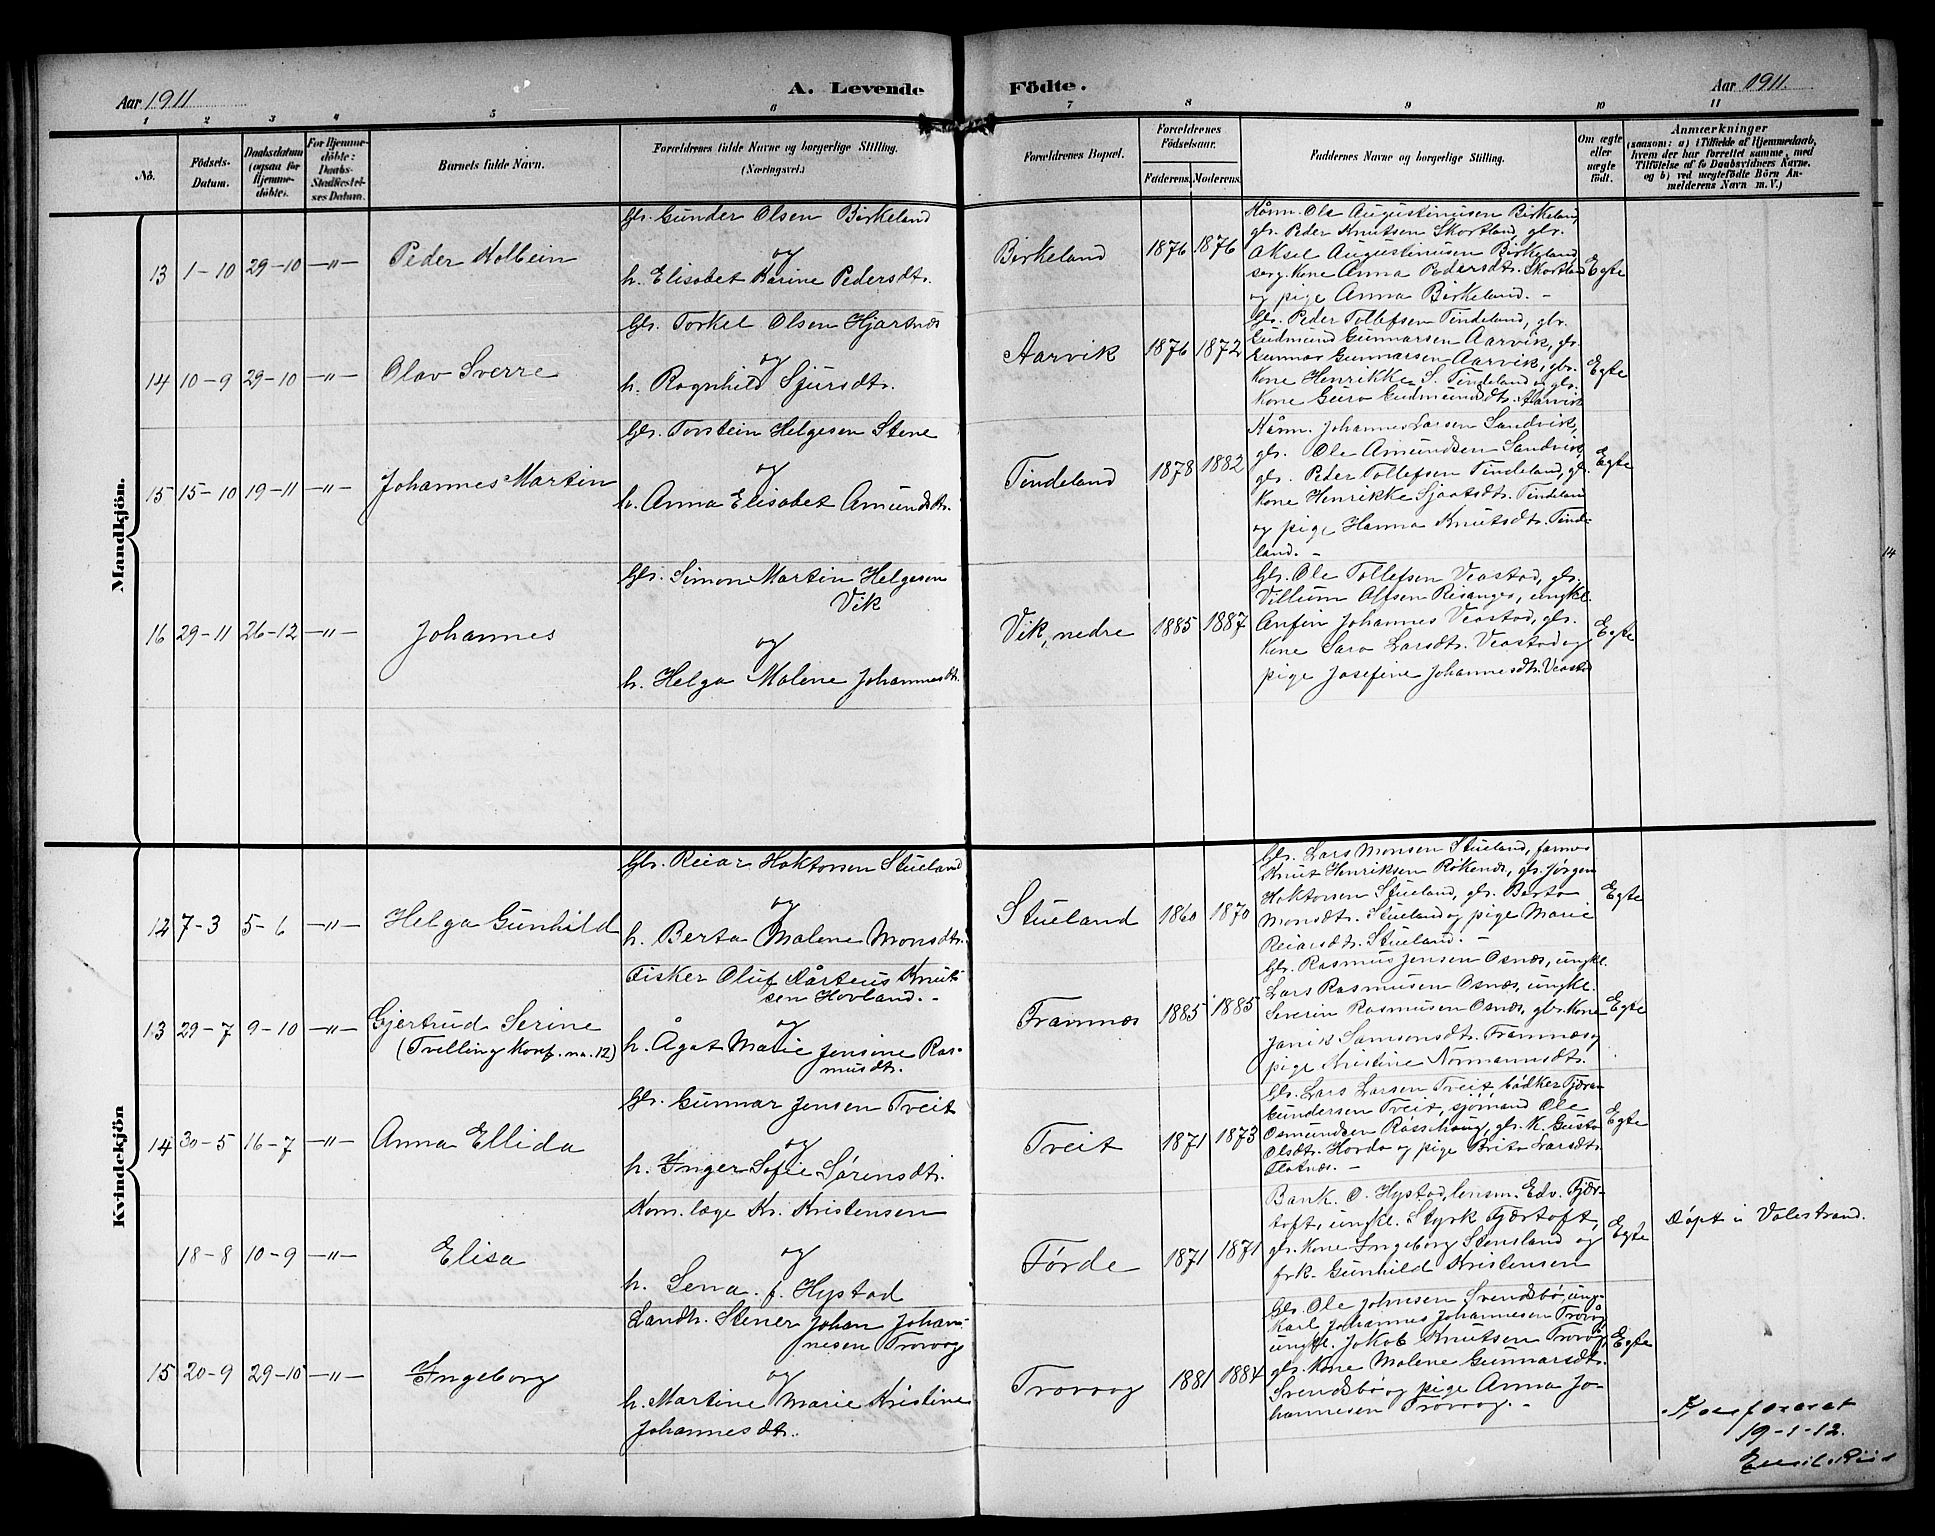 Aar 1911
A. Levende
Födte.
Aar 1911.
1 2 3 4 5 6 7 8 9 10 11
No.
Födsels-
Datum.
Daabsdatum
(ogsaa for
Hjemme-
döbte).
For Hjemme-
döbte:
Daabs-
Stadfæstel-
ses Datum.
Barnets fulde Navn.
Forældrenes fulde Navne og borgerlige Stilling.
(Næringsvei.)
Forældrenes Bopæl.
Forældrenes
Födselsaar.
Faderens. Moderens.
Faddernes Navne og borgerlige Stilling.
Om ægte
eller
uægte
födt.
Anmærkninger
(saasom: a) i Tilfælde af Hjemmedaab,
hvem der har forrettet samme, med
Tilföielse af to Daabsvidners Navne.
og b) ved uægtefödte Börn An-
melderens Navn m. V.)
Mandkjön.
13 1-10 29-10 —"—
Peder Kolbein
Gbr. Gunder Olsen Birkeland
og
h. Elisabet Karine Pedersdtr.
Birkeland
1876 1876
Kånm. Ole Augustinusen Birkeland,
gbr. Peder Knutsen Skortland, gbr.
Aksel Augustinusen Birkeland
serg. Kone Anna Pedersdtr. Skortland
og pige Anna Birkeland. -
Egte
14 10-9 29-10 —"—
Olav Sverre
Gbr. Torkel Olsen Hjartnes
og
h. Ragnhild Sjursdtr.
Aarvik
1876 1872
Gbr. Peder Tollefsen Tindeland, gbr.
Gudmund Gunnarsen Aarvik, gbr.
Gunnar Gunnarsen Aarvik, gbr.
Kone Henrikke S. Tindeland og gbr.
Kone Guro Gudmundsdtr. Aarvik
Egte
15 15-10 19-11 —"—
Johannes Martin
Gbr. Torstein Helgesen Stene
og
h. Anna Elisabet Amundsdtr.
Tindeland
1878 1882
Kånm. Johannes Larsen Sandvik,
gbr. Ole Amundsen Sandvik,
gbr. Peder Tollefsen Tindeland, gbr.
Kone Henrikke Sjoatsdtr. Tindeland
og pige Hanna Knutsdtr. Tinde-
land. -
Egte
16 29-11 26-12 —"—
Johannes
Gbr. Simon Martin Helgesen
Vik
og
h. Helga Malene Johannesdtr.
Vik, nedre
1885 1887
Gbr. Ole Tollefsen Veastad, gbr.
Villum Olsen Risanger, ungkl.
Anfin Johannes Veastad, gbr.
Kone Sara Larsdtr. Veastad og
pige Josefine Johannesdtr. Veastad
Egte
14
Kvindekjön
12 7-3 5-6 —"—
Helga Gunhild
Gbr. Reiar Haktorsen Stueland
og
h. Berta Malene Monsdtr.
Stueland
1860 1870
Gbr. Lars Monsen Stueland, farmer
Knut Henriksen Røkenes, gbr. Jørgen
Haktorsen Stueland, gbr. Berta
Monsdtr. Stueland og pige Marie
Reiarsdtr. Stueland. -
Egte
13 29-7 9-10 —"—
Gjertrud Serine
(Tvelling Konf. no. 12)
Fisker Oluf Mårteus Knut-
sen Hovland. -
og
h. Ågat Marie Jensine Ras-
musdtr.
Framnes
1885 1885
Gbr. Rasmus Jensen Osnes, ungkl.
Lars Rasmusen Osnes, ungkl.
Severin Rasmusen Osnes, gbr. Kone
Janik Samsonsdtr. Framnes og
pige Kristine Normannsdtr.
Egte
14 30-5 16-7 —"—
Anna Ellida
Gbr. Gunnar Jensen Tveit
og
h. Inger Sofie Sørensdtr.
Tveit
1871 1873
Gbr. Lars Larsen Tveit, bødker
Gundersen Tveit, sjømand Ole
Osmundsen Røsschaug, gbr. K. Gusta
Olsdtr. Horda og pige Brita Larsdtr.
Flatnes. -
Egte
18-8 10-9 —"—
Elisa
Kom. læge Kr. Kristensen
og
h. Lena f. Hystad
Førde
1871 1871
Bank. O. Hystad, lensm. Edv. Fjær-
toft, ungkl. Styrk Fjærtoft,
gbr. Kone Ingeborg Stensland og
frk. Gunhild Kristensen
Egte
Døpt i Valestrand.
15 20-9 29-10 —"—
Ingeborg
Landh. Stener Johan Johan-
nesen Trovåg
og
h. Martine Marie Kristine
Johannesdtr.
Trovaag
1881 1884
Gbr. Ole Johnsen Svendsbø, ung-
Karl Johannes Johannesen Trovåg
ungkl. Jakob Knutsen Trovåg
gbr. Kone Malene Gunnarsdtr.
Svendsbø og pige Anna Jo-
hannesen Trovåg. -
Egte
Konfereret
19-1-12.
Emil Riis